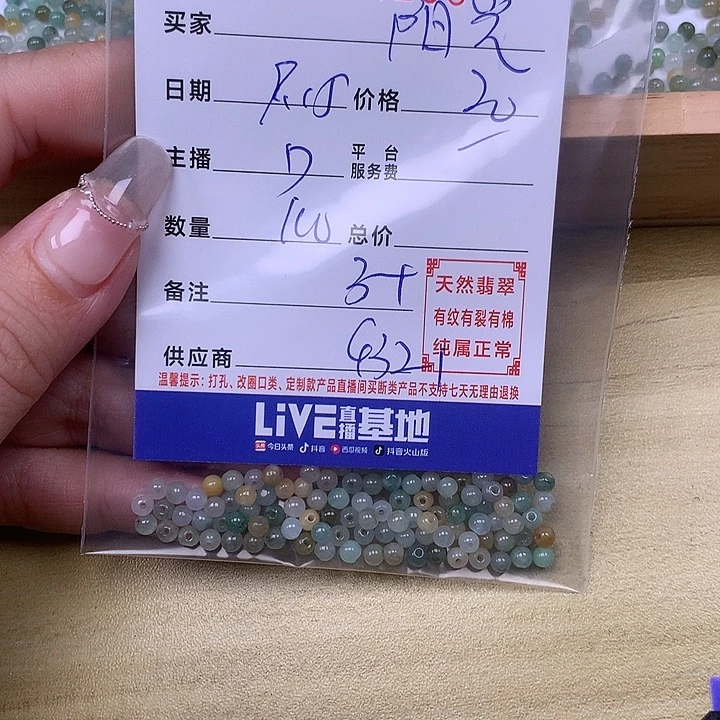 买家 阳光
日期 8.18 价格 20
主播 7 平台服务费
数量 100 总价
备注 3+
供应商 6321
天然翡翠
有纹有裂有棉
纯属正常
温馨提示：打孔、改圈口类、定制款产品直播间买断类产品不支持七天无理由退换
LiVE直播基地
头条 今日头条 抖音 西瓜视频 抖音火山版